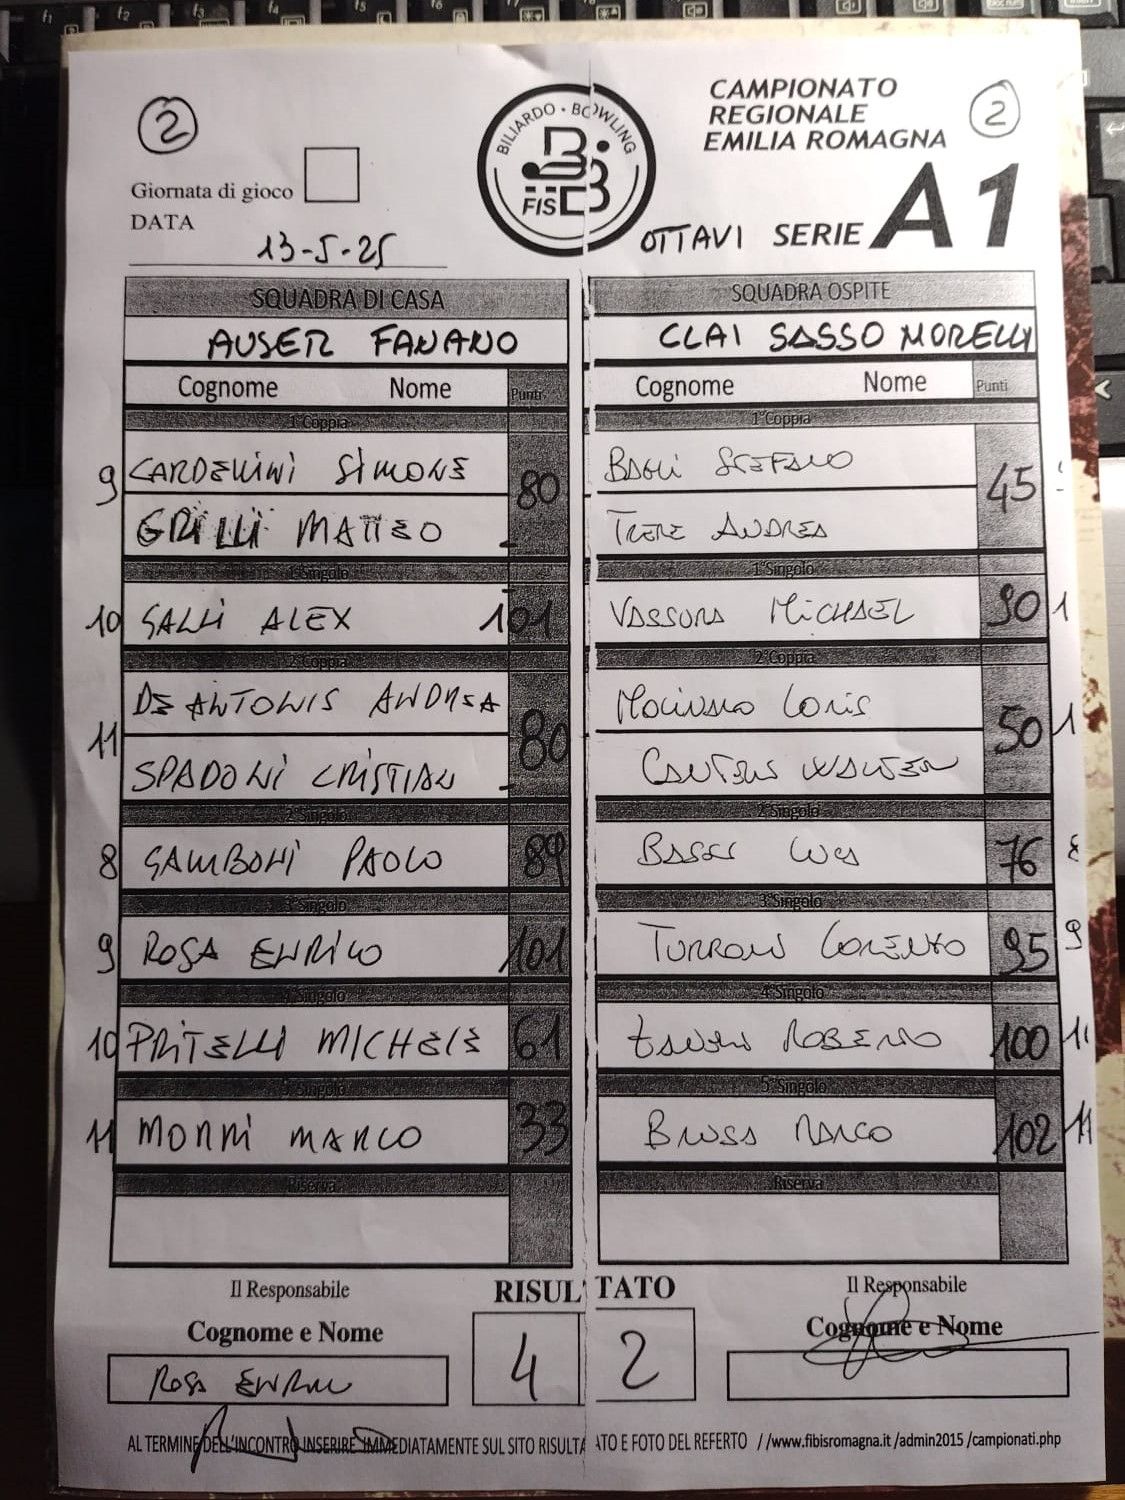 2
BILIARDO • BOWLING
FIS
CAMPIONATO
REGIONALE
EMILIA ROMAGNA
2
Giornata di gioco
DATA
13-5-25
OTTAVI SERIE A1
SQUADRA DI CASA
SQUADRA OSPITE
AUSER FANANO
CLAI SASSO MORELLI
Cognome Nome Punti
Cognome Nome Punti
1°Coppia
1°Coppia
9 CARDELLINI SIMONE 80
GRILLI MATTEO
BAGLI STEFANO 45
TRERE ANDREA
1°Singolo
1°Singolo
10 GALLI ALEX 101
VASSURA MICHAEL 90 1
2°Coppia
2°Coppia
11 DE ANTONIS ANDREA 80
SPADONI CRISTIAN
MOLINARO LORIS 50 1
WALTER
2°Singolo
2°Singolo
8 GAMBONI PAOLO 89
LUCA 76
3°Singolo
3°Singolo
9 ROSA ENRICO 101
TURRONI LORENZO 95 9
4°Singolo
4°Singolo
10 PRITELLI MICHELE 61
ROBERTO 100
5°Singolo
5°Singolo
11 MORRI MARCO 33
BRUSA MARCO 102 11
Riserva
Riserva
Il Responsabile
RISULTATO
Il Responsabile
Cognome e Nome
Cognome e Nome
ROSA ENRICO
4 2
AL TERMINE DELL'INCONTRO INSERIRE IMMEDIATAMENTE SUL SITO RISULTATO E FOTO DEL REFERTO //www.fibisromagna.it /admin2015 /campionati.php